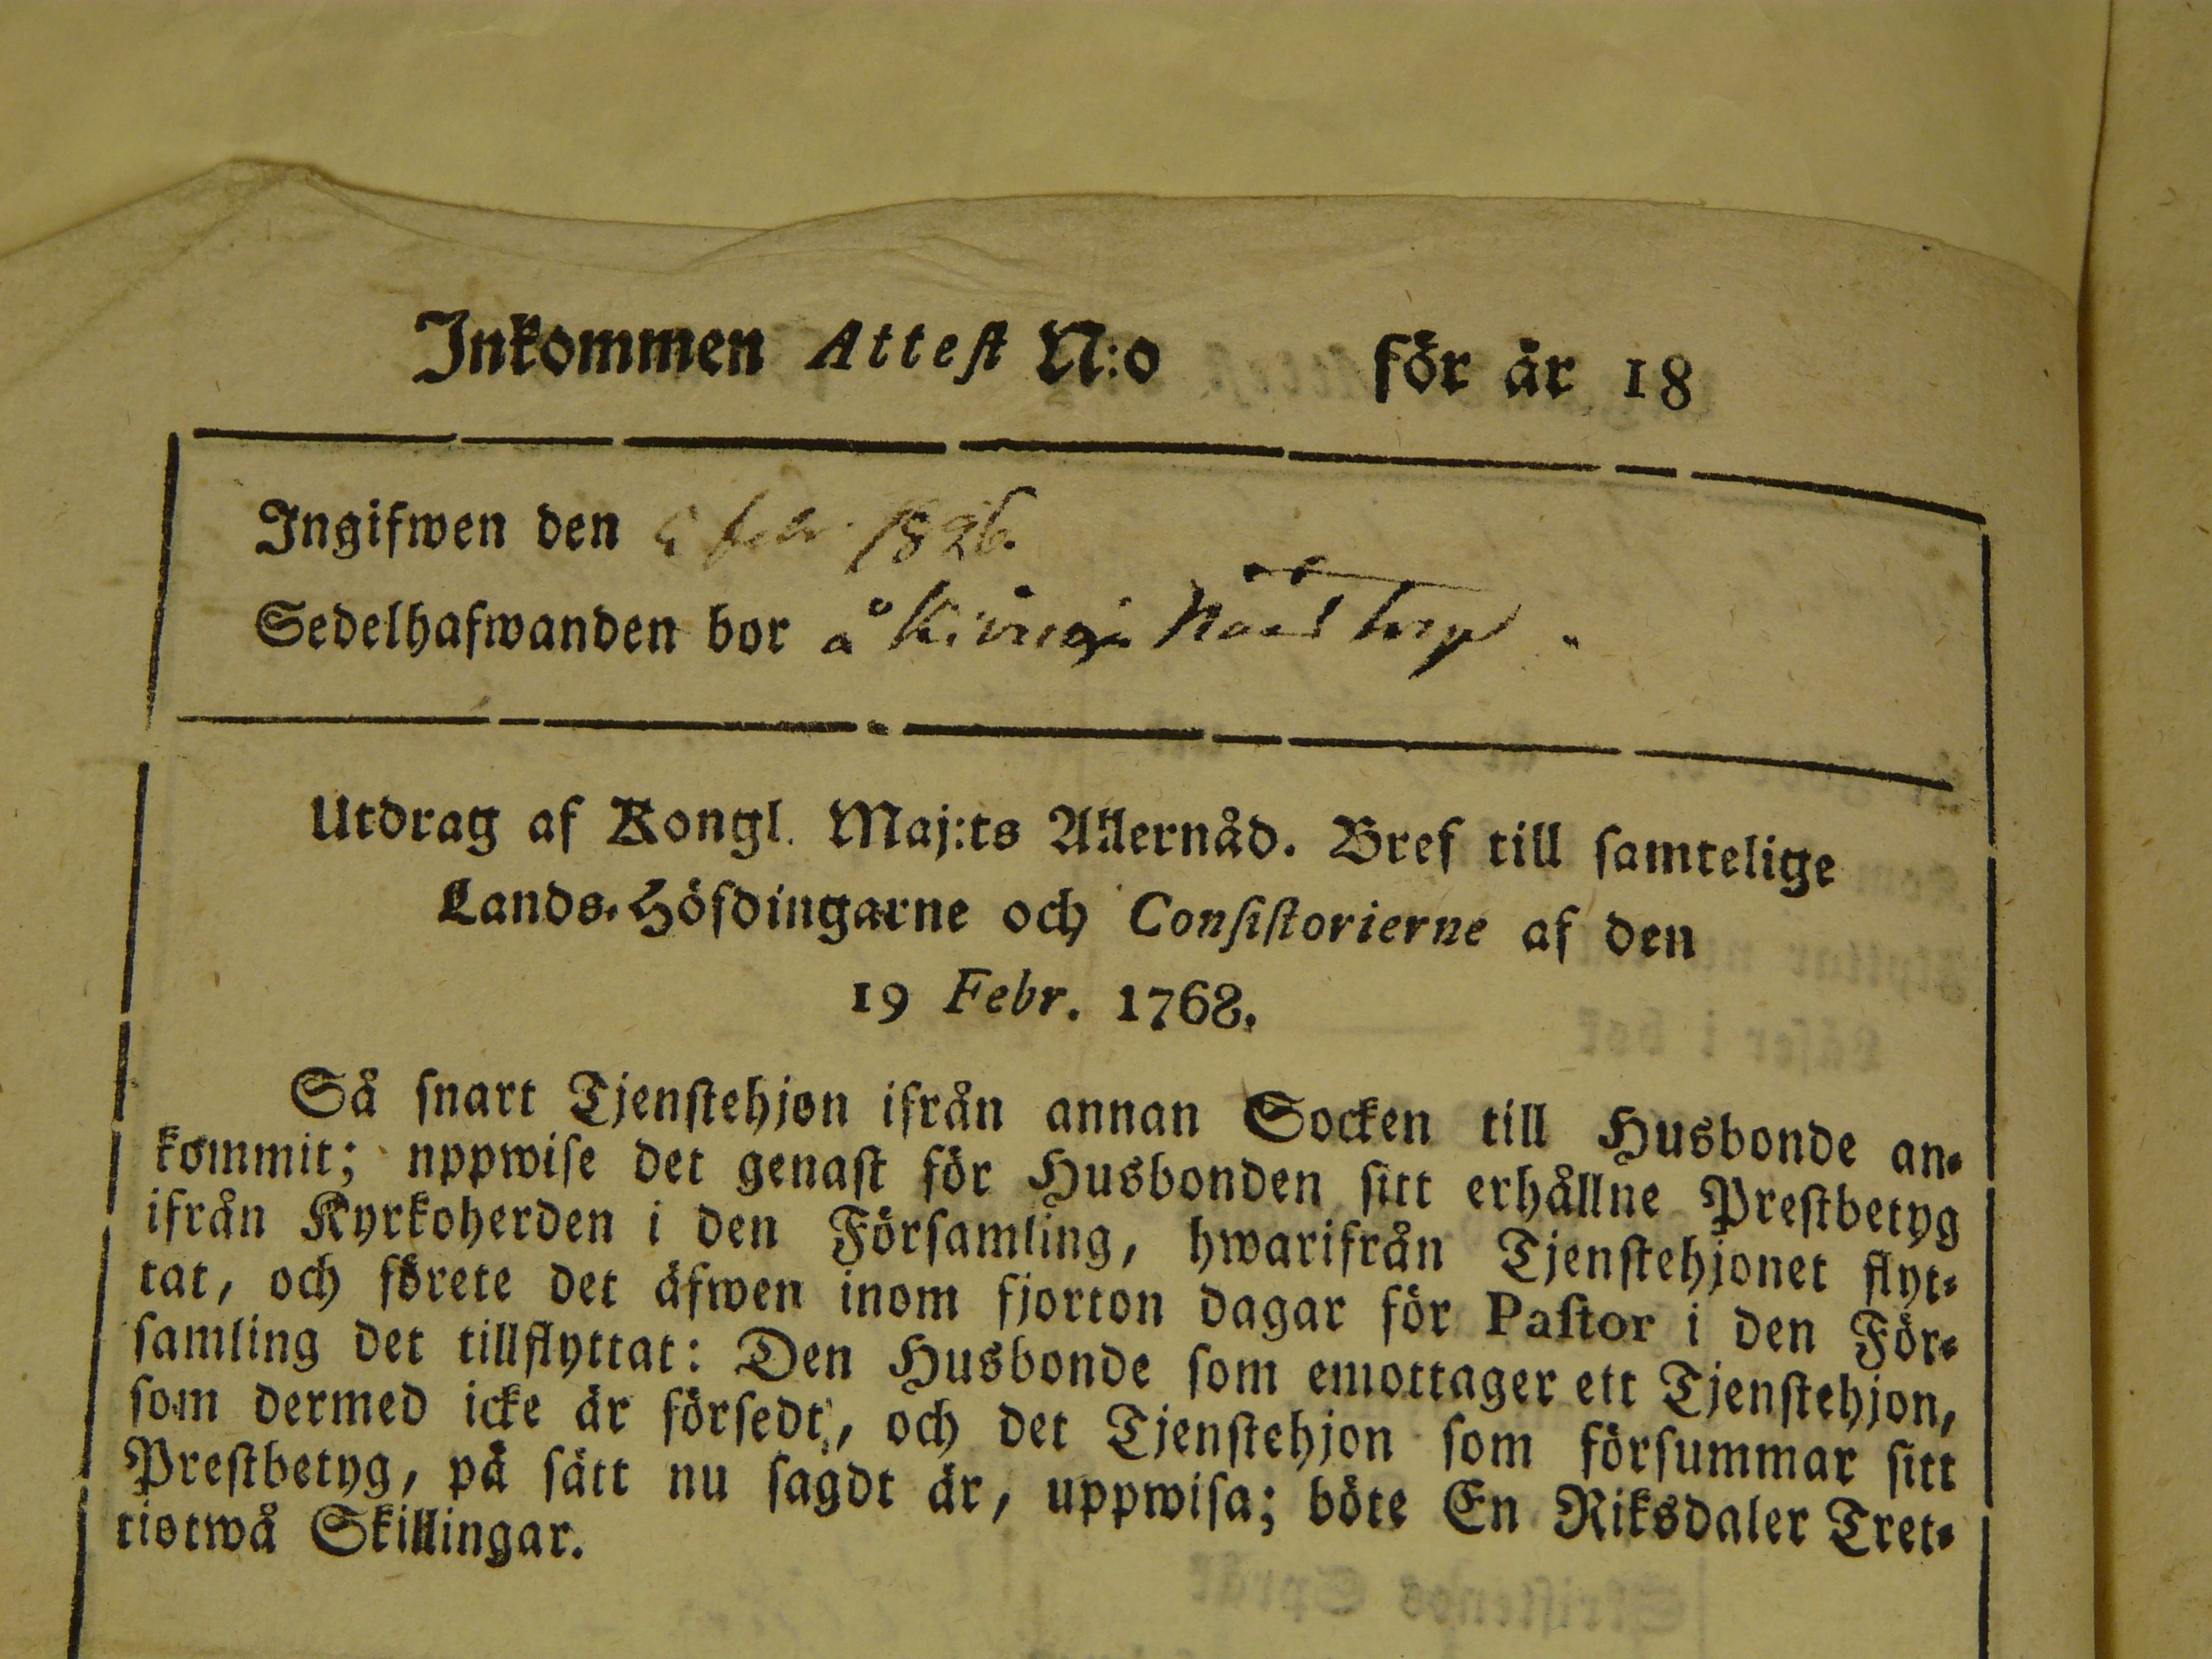 Inkommen Attest N:o för år 18
Ingifwen den febr. 1826.
Sedelhafwanden bor å
Utdrag af Kongl. Maj:ts Allernåd. Bref till samtelige
Lands-Höfdingarne och Consistorierne af den
19 Febr. 1768.
Så snart Tjenstehjon ifrån annan Socken till Husbonde an-
kommit; nppwise det genast för Husbonden sitt erhållne Prestbetyg
ifrån Kyrkoherden i den Församling, hwarifrån Tjenstehjonet flyt-
tat, och förete det äfwen inom fjorton dagar för Pastor i den För-
samling det tillflyttat: Den Husbonde som emottager ett Tjenstehjon,
som dermed icke är försedt, och det Tjenstehjon som försummar sitt
Prestbetyg, på sätt nu sagdt är, uppwisa; böte En Riksdaler Tret-
tiotwå Skillingar.